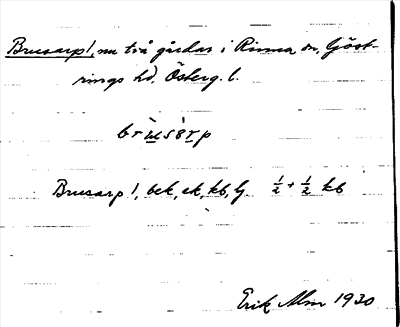 Brusarp!, nu två gårdar i Rinna sn, Göst-
rings hd. Österg. l.
Brusarp!, bek, ek, kb, G. ½ + ½ kb
Erik Alm 1930